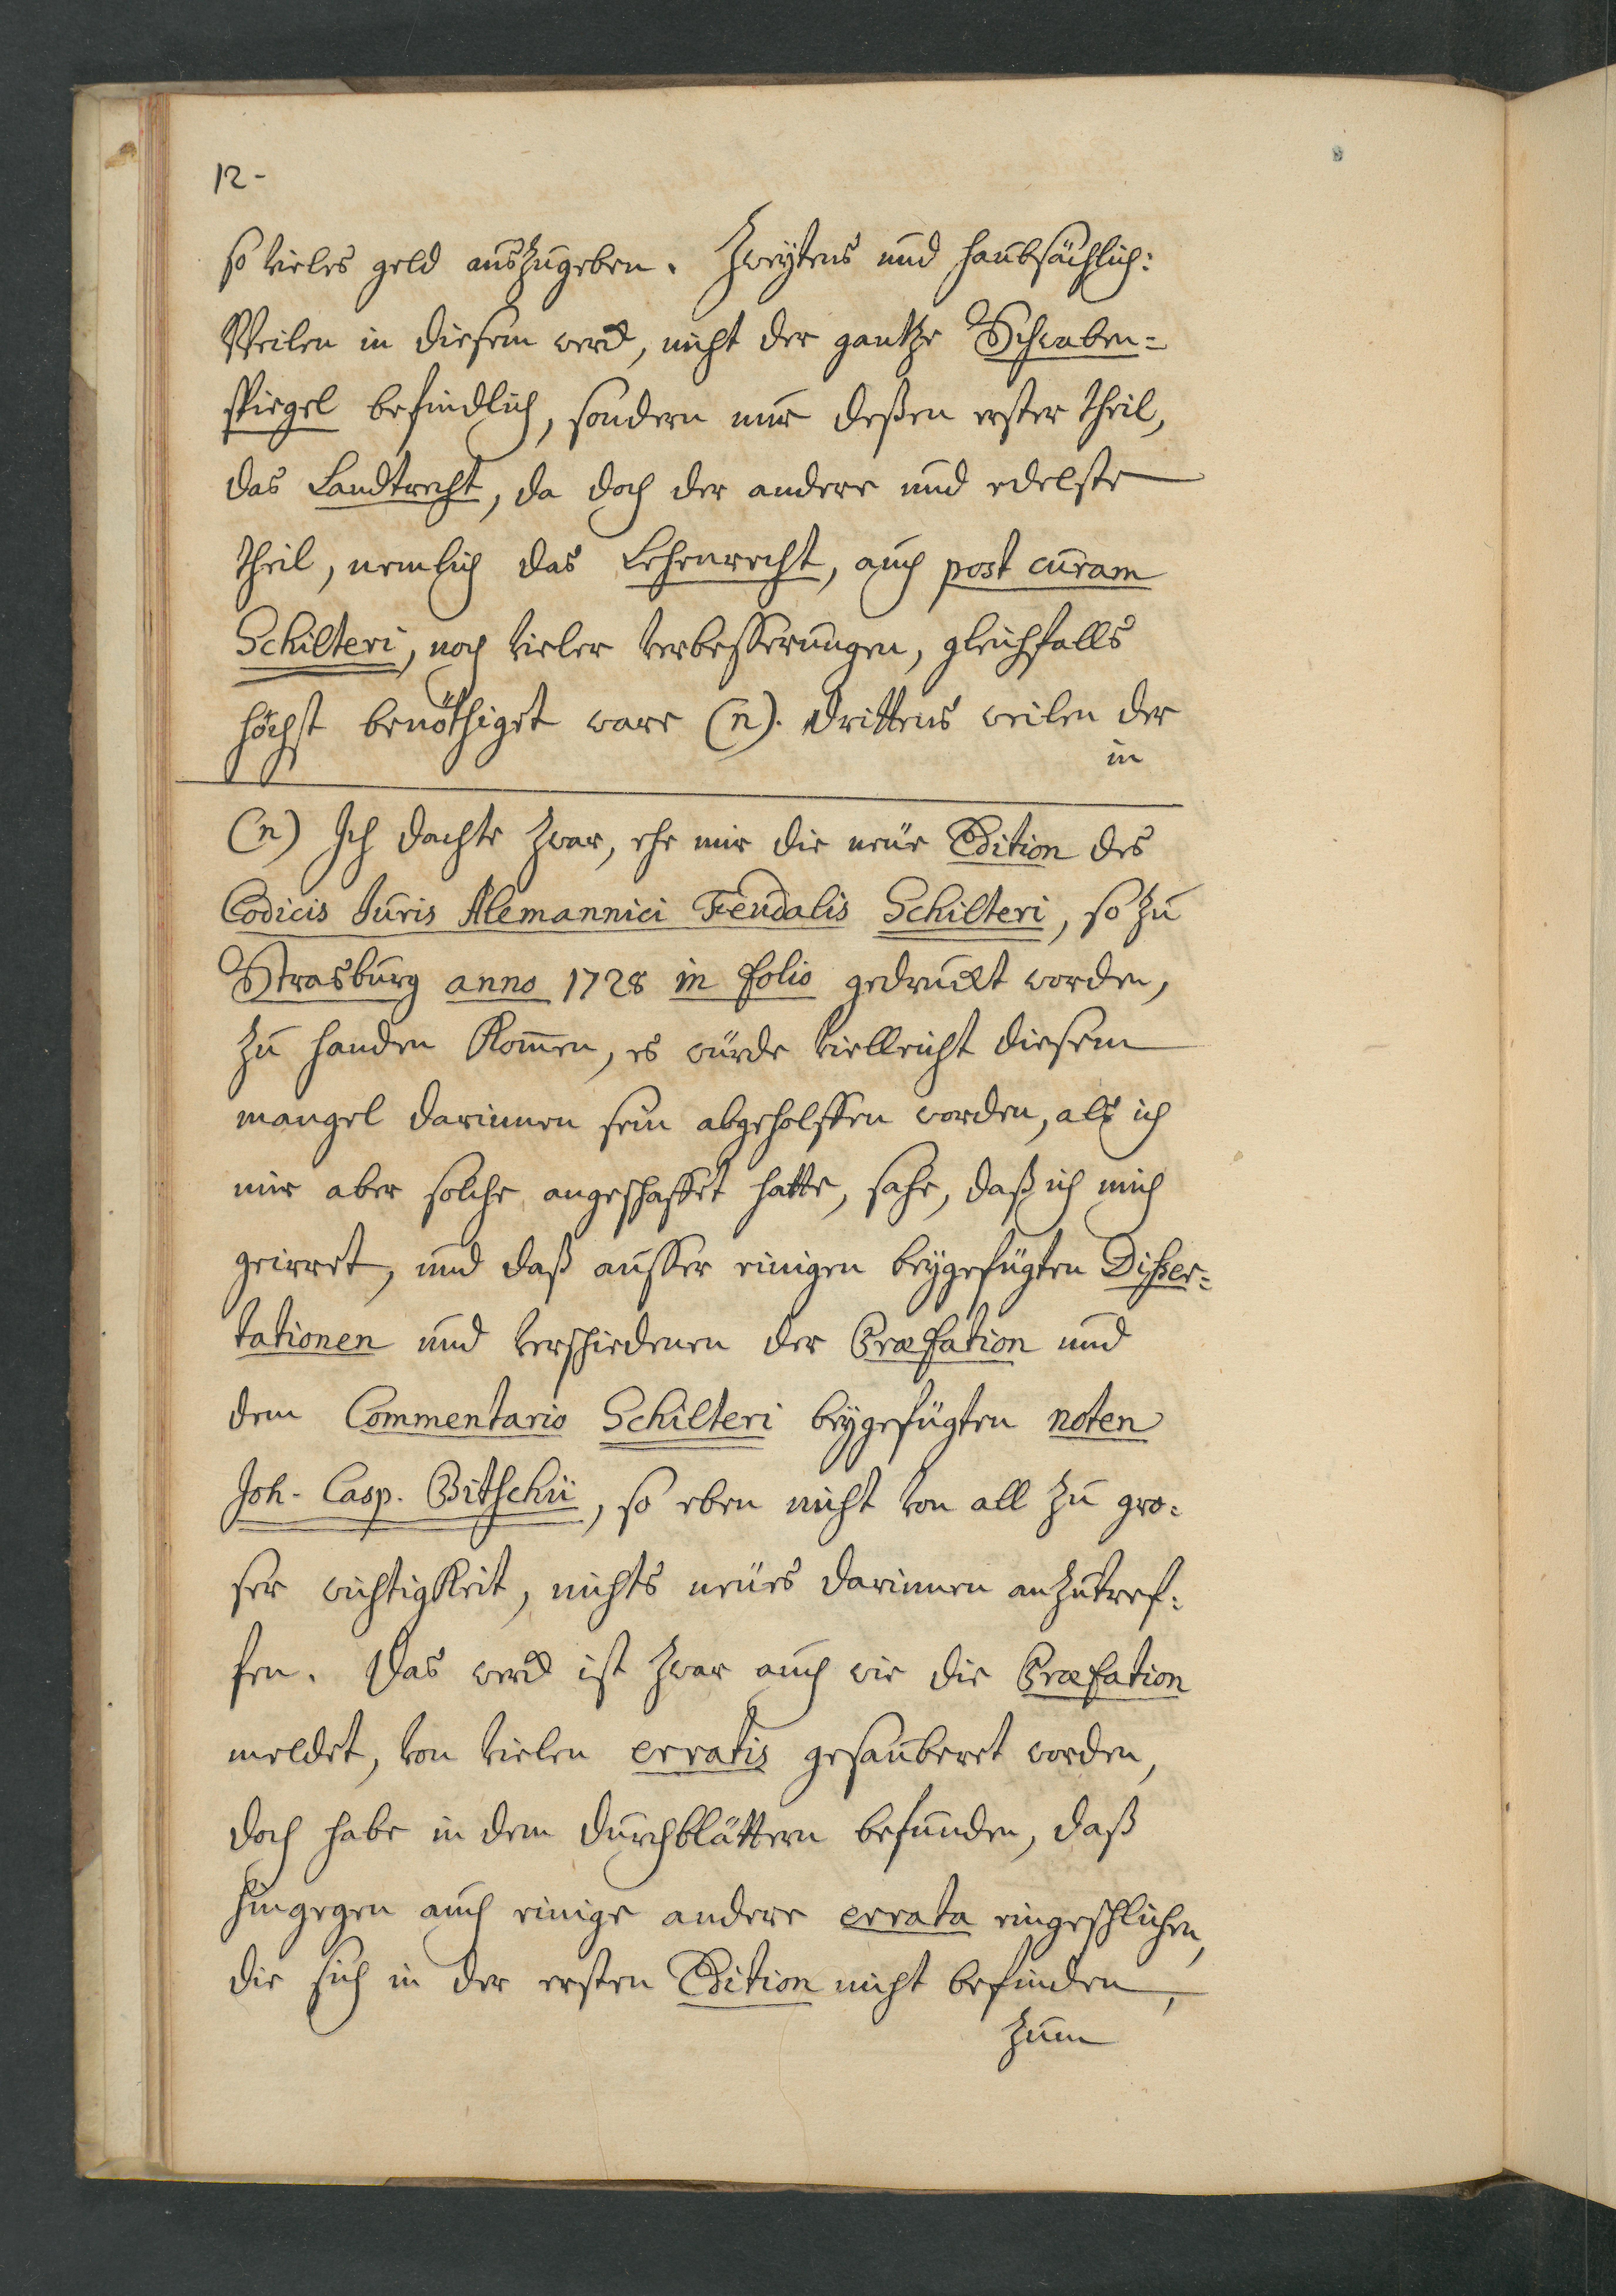 12-
so vieles geld auszugeben. Zweÿtens und haubsächlich:
Weilen in diesem werck, nicht der gantze Schwaben=
spiegel befindlich, sondern nur deßen erster theil,
das Landtrecht, da doch der andere und edelste
theil, nemlich das Lehenrecht, auch post curam
Schilteri, noch vieler verbesserungen, gleichfalls
höchst benöthiget ware (n). drittens weilen der
in
(n) Ich dachte zwar, ehe mir die neüe Edition des
Codicis Juris Alemannici Feudalis Schilteri, so zu
Strasburg anno 1728 in folio gedruckt worden,
zu handen kom̄en, es würde vielleicht diesem
mangel darinnen sein abgeholffen worden, als ich
mir aber solche angeschaffet hatte, sahe, daß ich mich
geirret, und daß ausser einigen beÿgefügten Disser=
tationen und verschiedenen der Præfation und
dem Commentario Schilteri beÿgefügten noten
Joh. Casp. Bitschii, so eben nicht von all zu gro=
ser wichtigkeit, nichts neües darinnen anzutref=
fen. Das werck ist zwar auch wie die Præfation
meldet, von vielen erratis gesauberet worden,
doch habe in dem durchblättern befunden, daß
hingegen auch einige andere errata eingeschlichen,
die sich in der ersten Edition nicht befinden,
zum